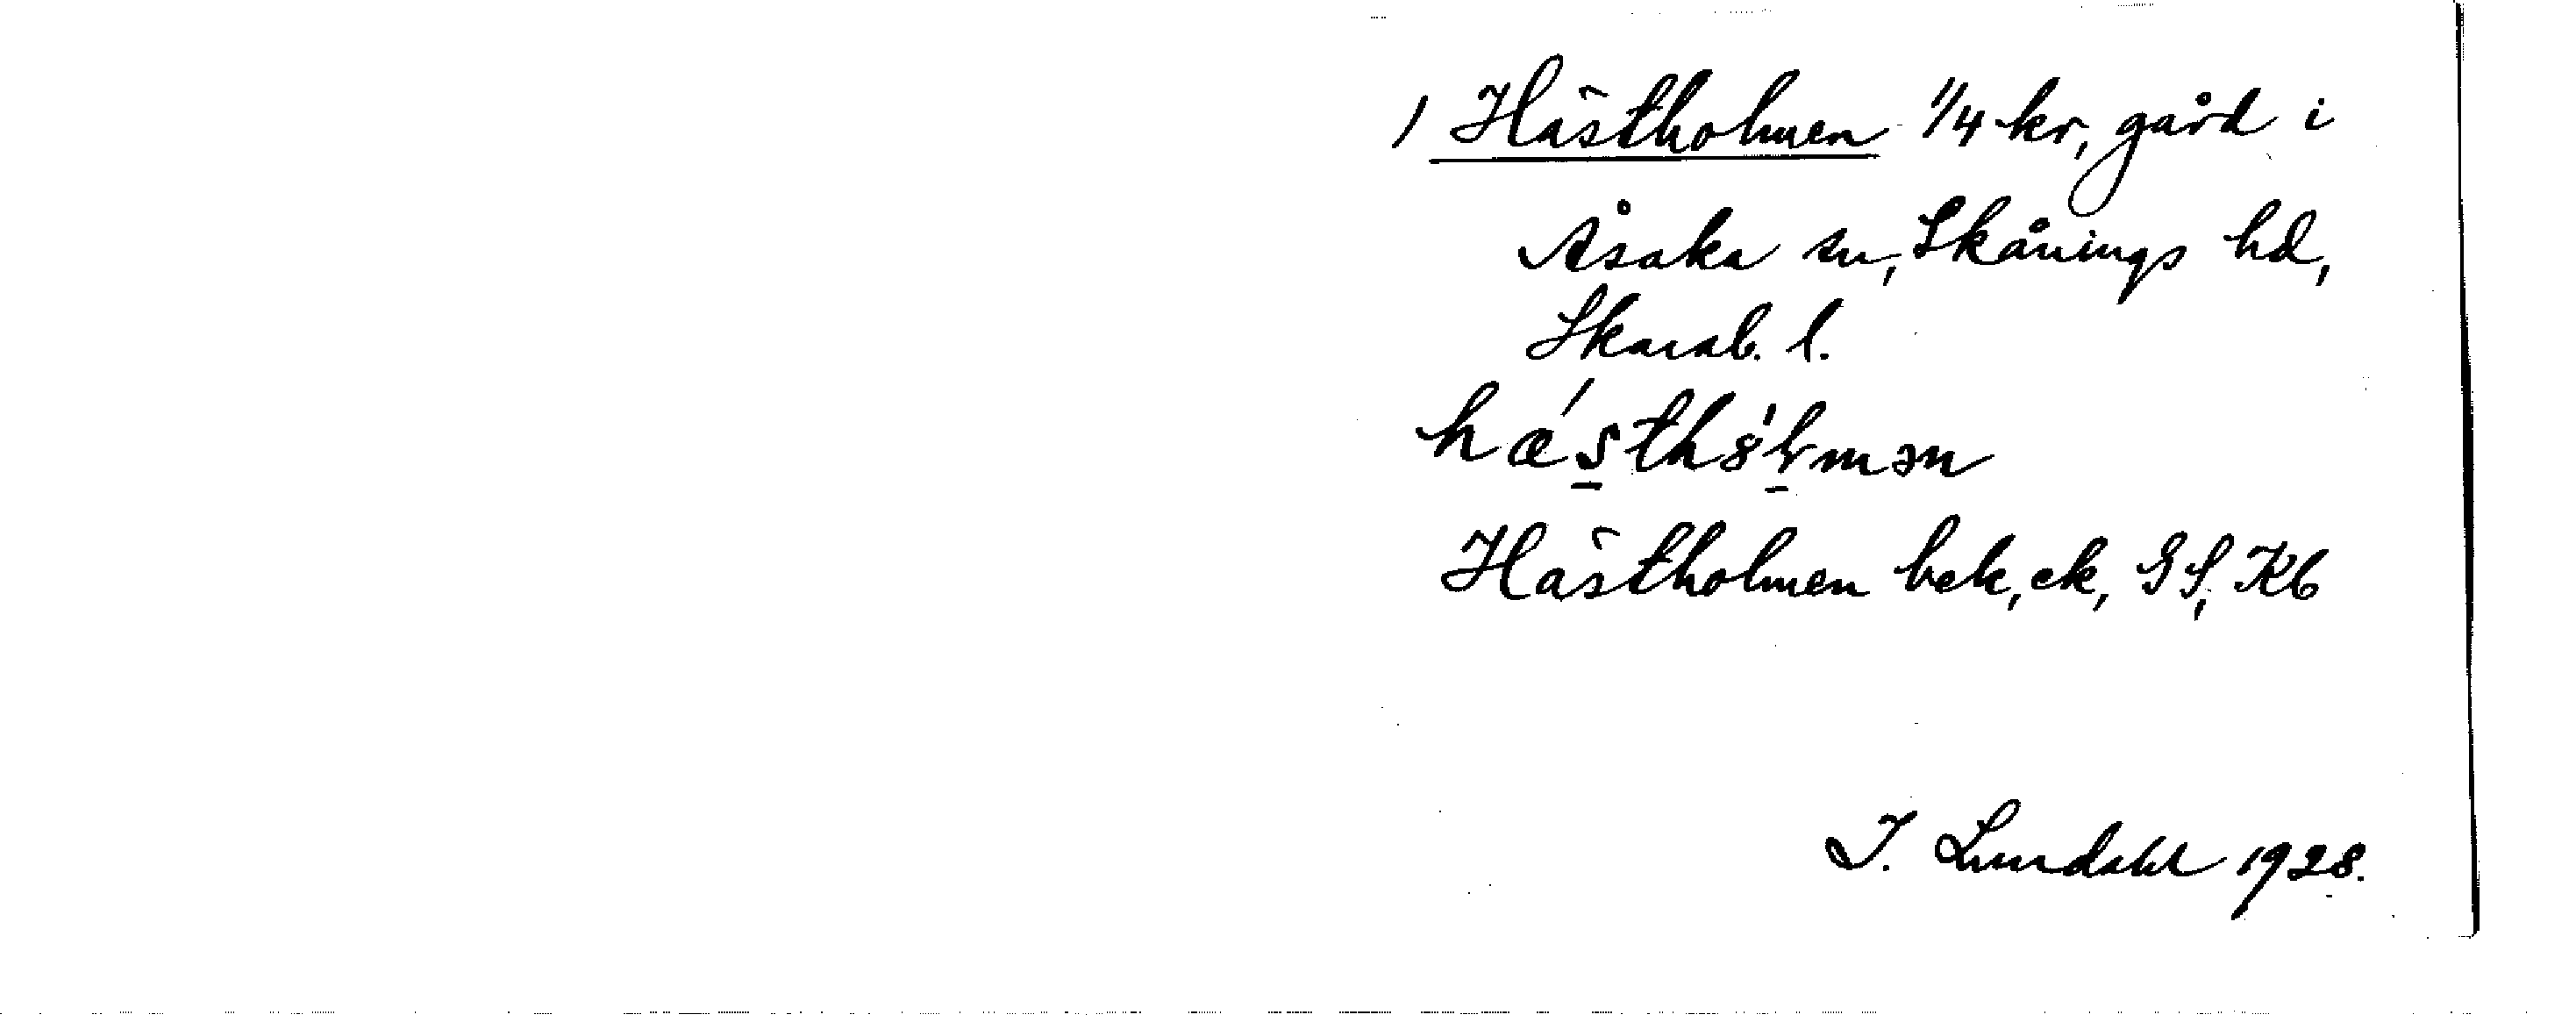 1) Hästholmen 1/4 kr, gård i
Åsaka sn, Skånings hd,
Skarab. l.
Hästholmen bek, ek, GS, Kb
I. Lundahl 1928.